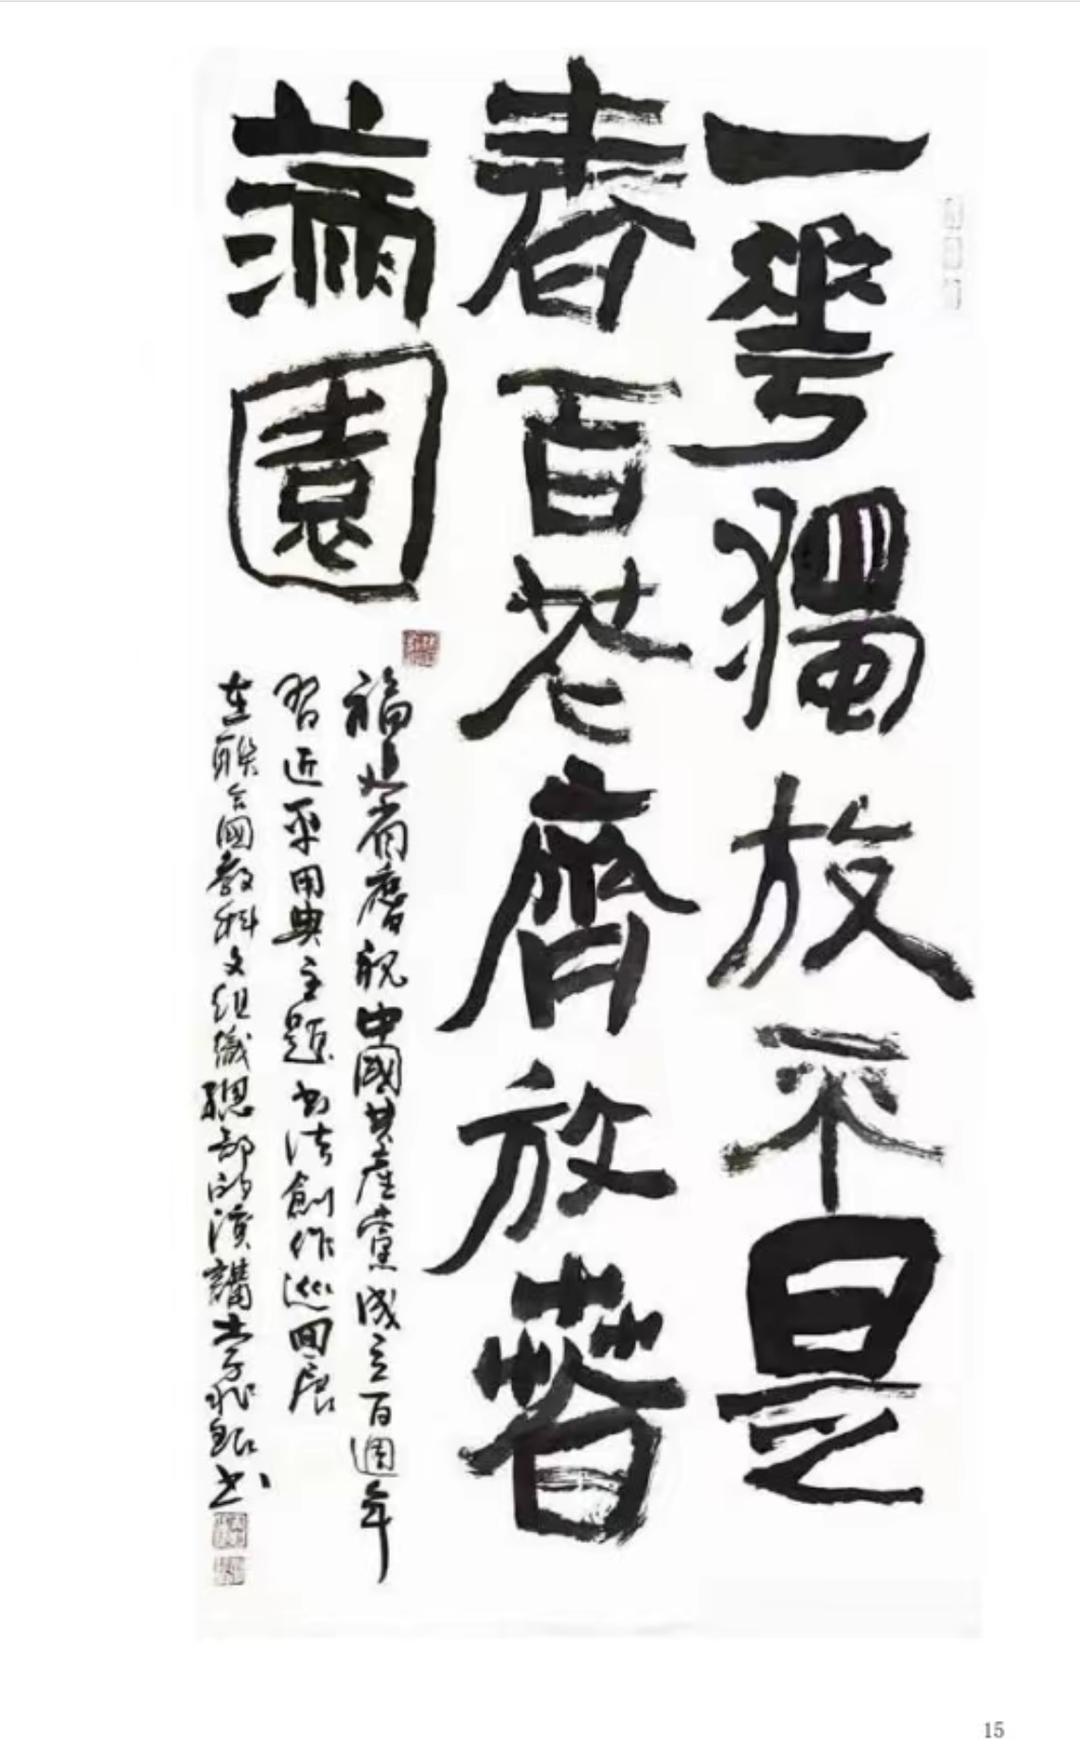 一花獨放不是
春百花齊放春
滿園
福建省慶祝中國共產黨成立百週年
習近平用典主題書法創作巡回展
在聯合國教科文組織總部的演講
書
15